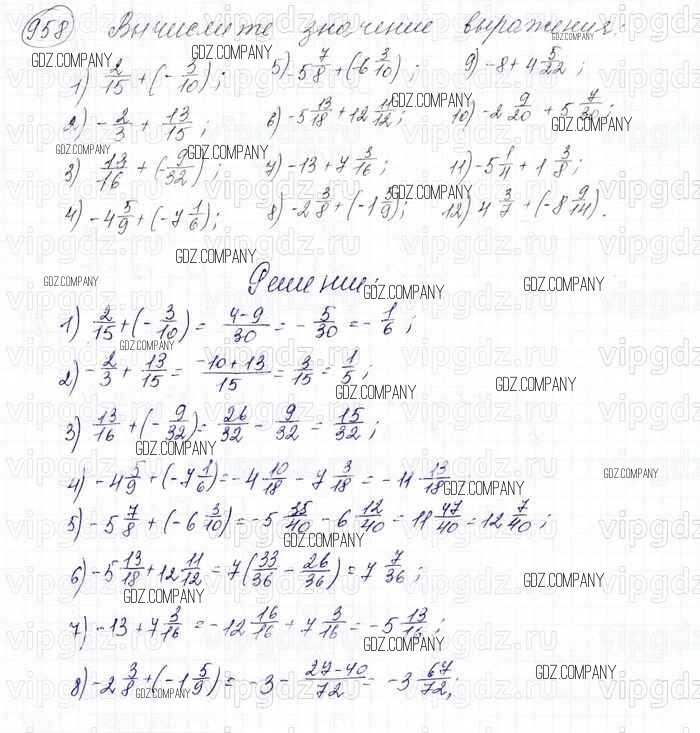 958 Вычислите значение выражения:
1) 2/15 + (- 3/10); 5) -5 7/8 + (-6 3/10); 9) -8 + 4 5/22;
2) - 2/3 + 13/15; 6) -5 13/18 + 12 11/12; 10) -2 9/20 + 5 7/30;
3) 13/16 + (- 9/32); 7) -13 + 7 3/16; 11) -5 1/4 + 1 3/8;
4) -4 5/9 + (-7 1/6); 8) -2 3/8 + (-1 5/9); 12) 4 3/7 + (-8 9/14).
Решение:
1) 2/15 + (- 3/10) = 4-9/30 = - 5/30 = - 1/6;
2) - 2/3 + 13/15 = -10+13/15 = 3/15 = 1/5;
3) 13/16 + (- 9/32) = 26/32 - 9/32 = 15/32;
4) -4 5/9 + (-7 1/6) = -4 10/18 - 7 3/18 = -11 13/18
5) -5 7/8 + (-6 3/10) = -5 35/40 - 6 12/40 = 11 47/40 = 12 7/40;
6) -5 13/18 + 12 11/12 = 7(33/36 - 26/36) = 7 7/36;
7) -13 + 7 3/16 = -12 16/16 + 7 3/16 = -5 13/16;
8) -2 3/8 + (-1 5/9) = -3 - 27-40/72 = -3 67/72;
GDZ.COMPANY
vipgdz.ru